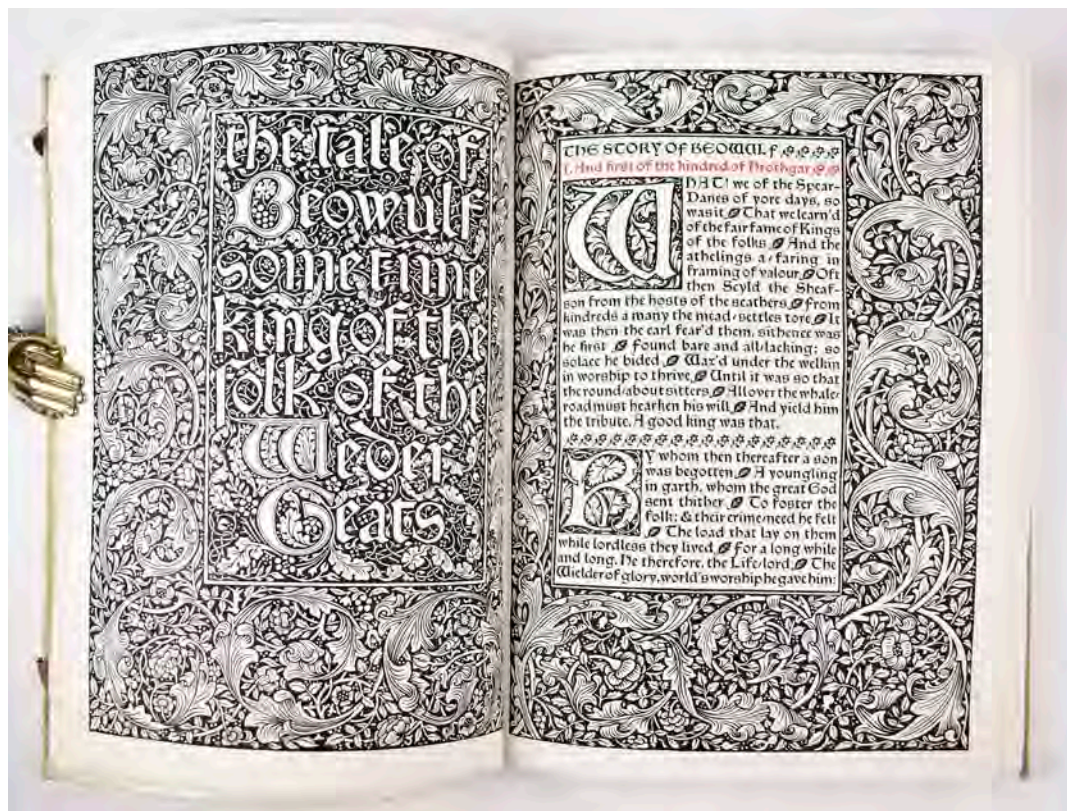 the tale of
Beowulf
sometime
king of the
folk of the
Weder
Geats
THE STORY OF BEOWULF
I. And first of the kindred of Hrothgar
WHAT! we of the Spear-
Danes of yore days, so
was it That we learn'd
of the fair fame of Kings
of the folks And the
athelings a-faring in
framing of valour. Oft
then Scyld the Sheaf-
son from the hosts of the scathers, From
kindreds a many the mead-settles tore It
was then the earl fear'd them, sithence was
he first Found bare and all-lacking; so
solace he bided Wax'd under the welkin
in worship to thrive, Until it was so that
the round-about sitters All over the whale-
road must hearken his will And yield him
the tribute. A good king was that.
BY whom then thereafter a son
was begotten, A youngling
in garth, whom the great God
sent thither To foster the
folk; & their crime-need he felt
The load that lay on them
while lordless they lived For a long while
and long. He therefore, the Life-lord, The
Wielder of glory, world's worship he gave him: